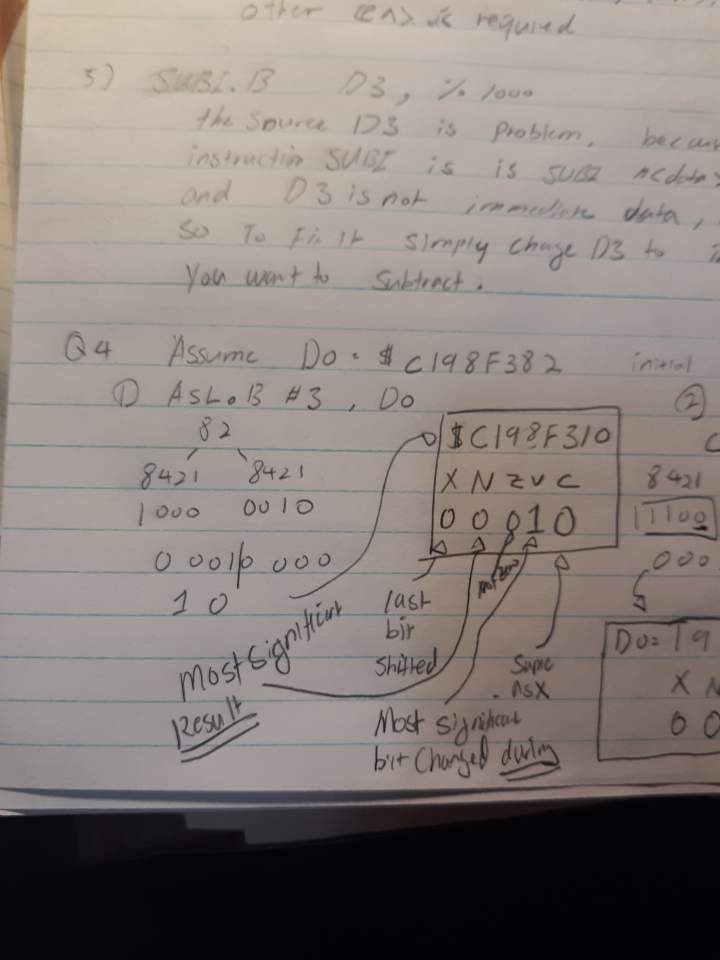 other is required
5) SUBI.B D3, % 1000
the source D3 is problem. becau
instruction SUBI is is SUBI
and D3 is not immediate data,
So To Fix It simply change D3 to
You want to Subtract.
Q4 Assume Do = $ C198F382 initial
① ASL.B #3, Do
82
8421 8421
1000 0010
0 0010 000
1 0
$C198F310
X N Z V C
0 0 0 1 0
Most significant
Result
last
bit
shifted
not zero
Same
as X
Most significant
bit Changed during
②
C
8421
11100
000
Do= 19
X N
0 0